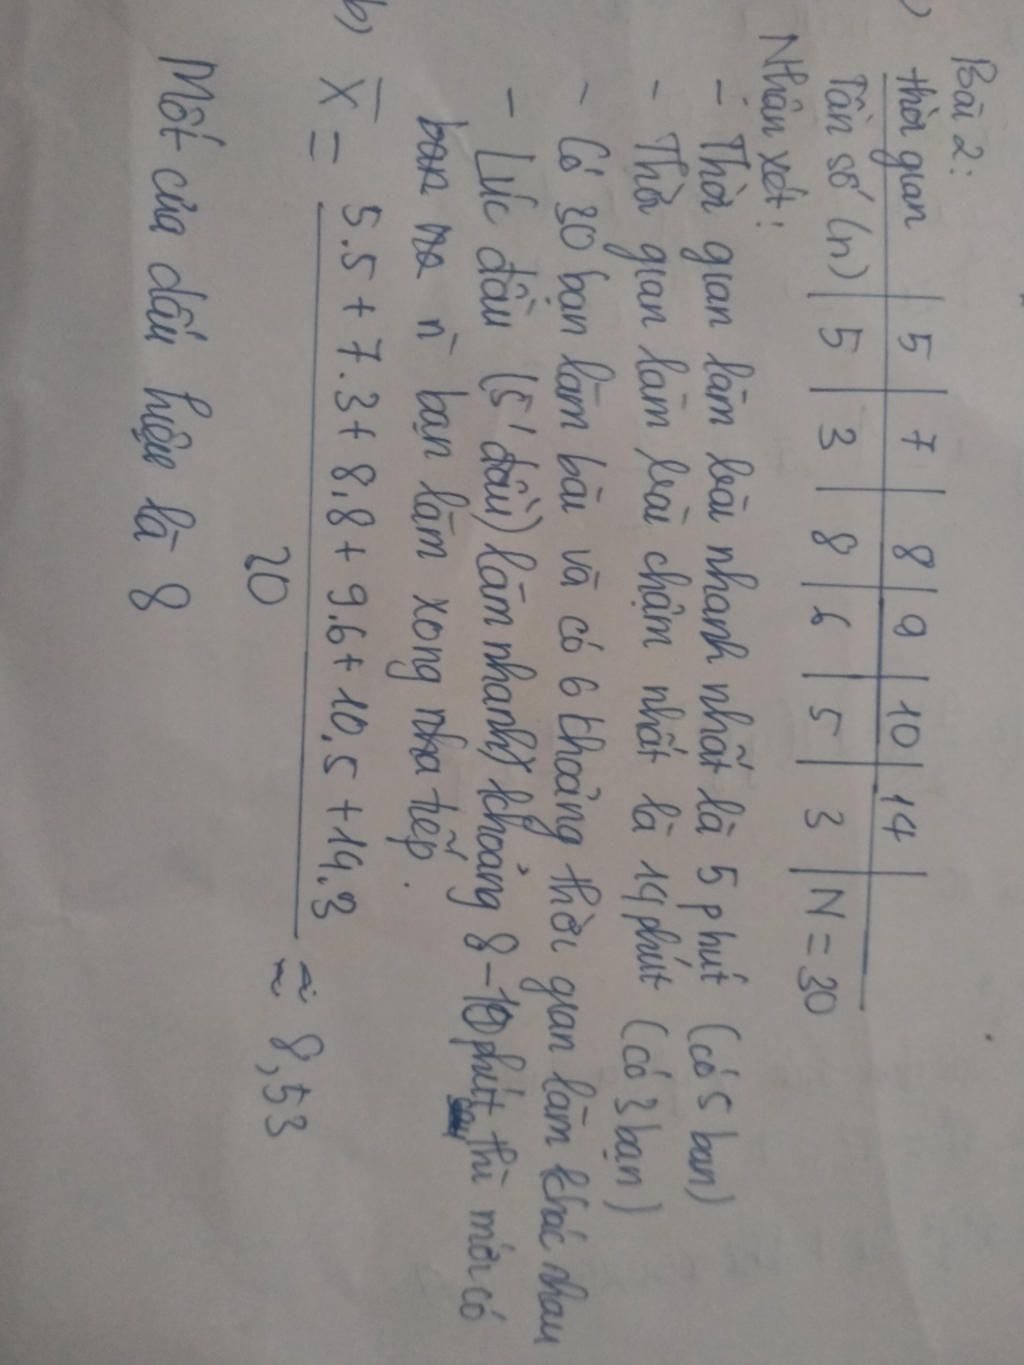 Bài 2:
thời gian | 5 | 7 | 8 | 9 | 10 | 14 |
Tần số (n) | 5 | 3 | 8 | 6 | 5 | 3 | N = 30
Nhận xét:
- Thời gian làm bài nhanh nhất là 5 phút (có 5 bạn)
- Thời gian làm bài chậm nhất là 14 phút (có 3 bạn)
- Có 30 bạn làm bài và có 6 khoảng thời gian làm khác nhau
- Lúc đầu (5' đầu) làm nhanh, khoảng 8 - 10 phút thì mới có
bạn làm xong tiếp.
b) X̄ = 5.5 + 7.3 + 8.8 + 9.6 + 10.5 + 14.3
20
≈ 8,53
Mốt của dấu hiệu là 8